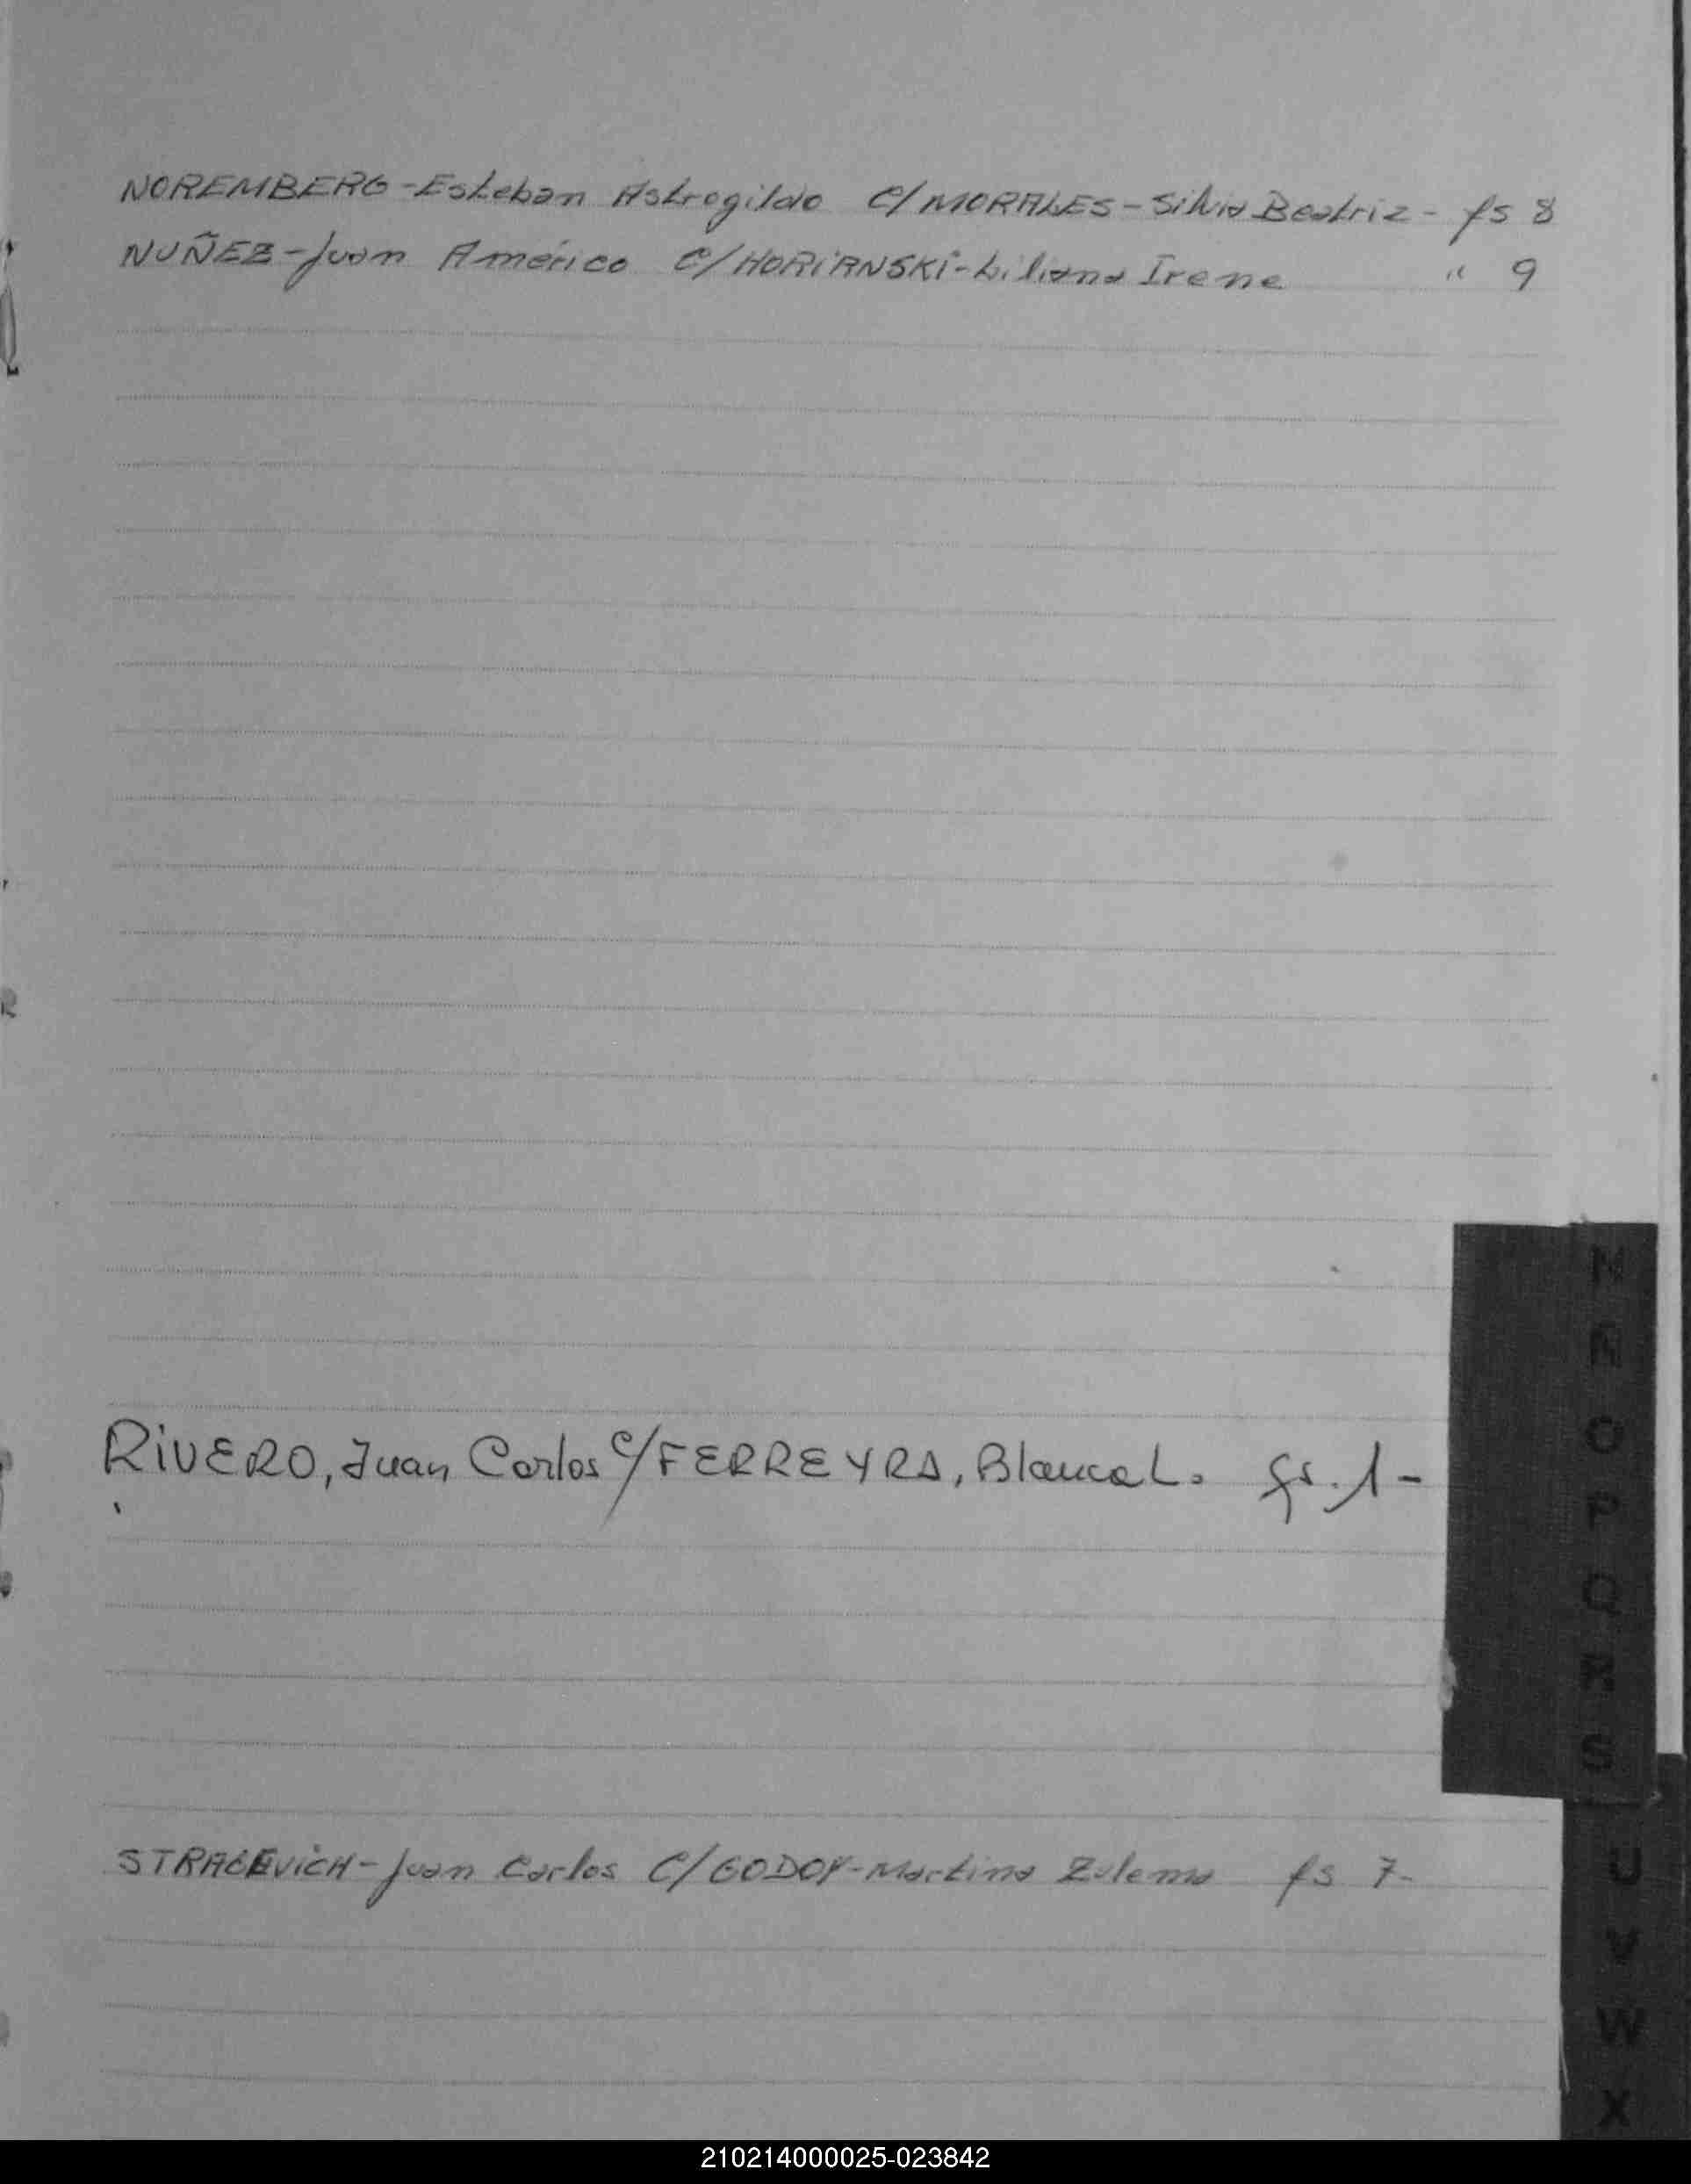 NOREMBERG - Esteban Astrogildo C/ MORALES - Silvia Beatriz - fs 8
NUÑEZ - Juan Américo C/ HORIANSKI - Liliana Irene " 9
RIVERO, Juan Carlos C/ FERREYRA, Blanca L. fs. 1 -
STRACEVICH - Juan Carlos C/ GODOY - Martina Zulema fs 7 -
N
Ñ
O
P
Q
R
S
U
V
W
X
210214000025-023842